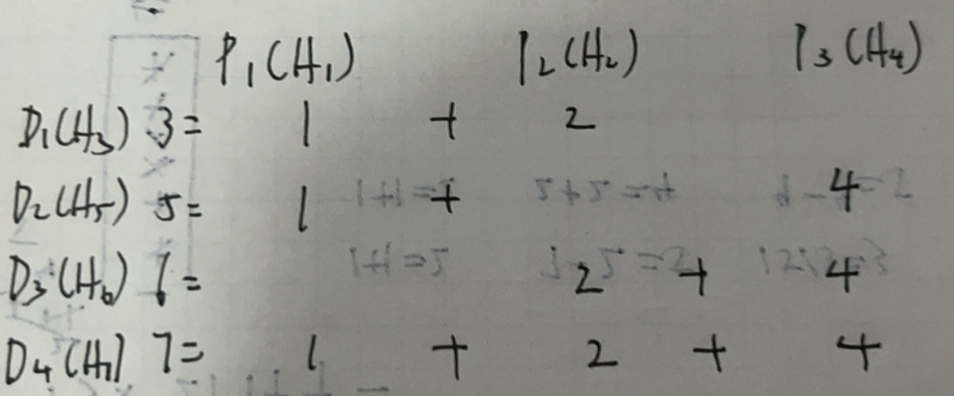 P₁(H₁) P₂(H₂) P₃(H₄)
D₁(H₃) 3= 1 + 2
D₂(H₅) 5= 1 + 4
D₃(H₆) 6= 2 + 4
D₄(H₇) 7= 1 + 2 + 4